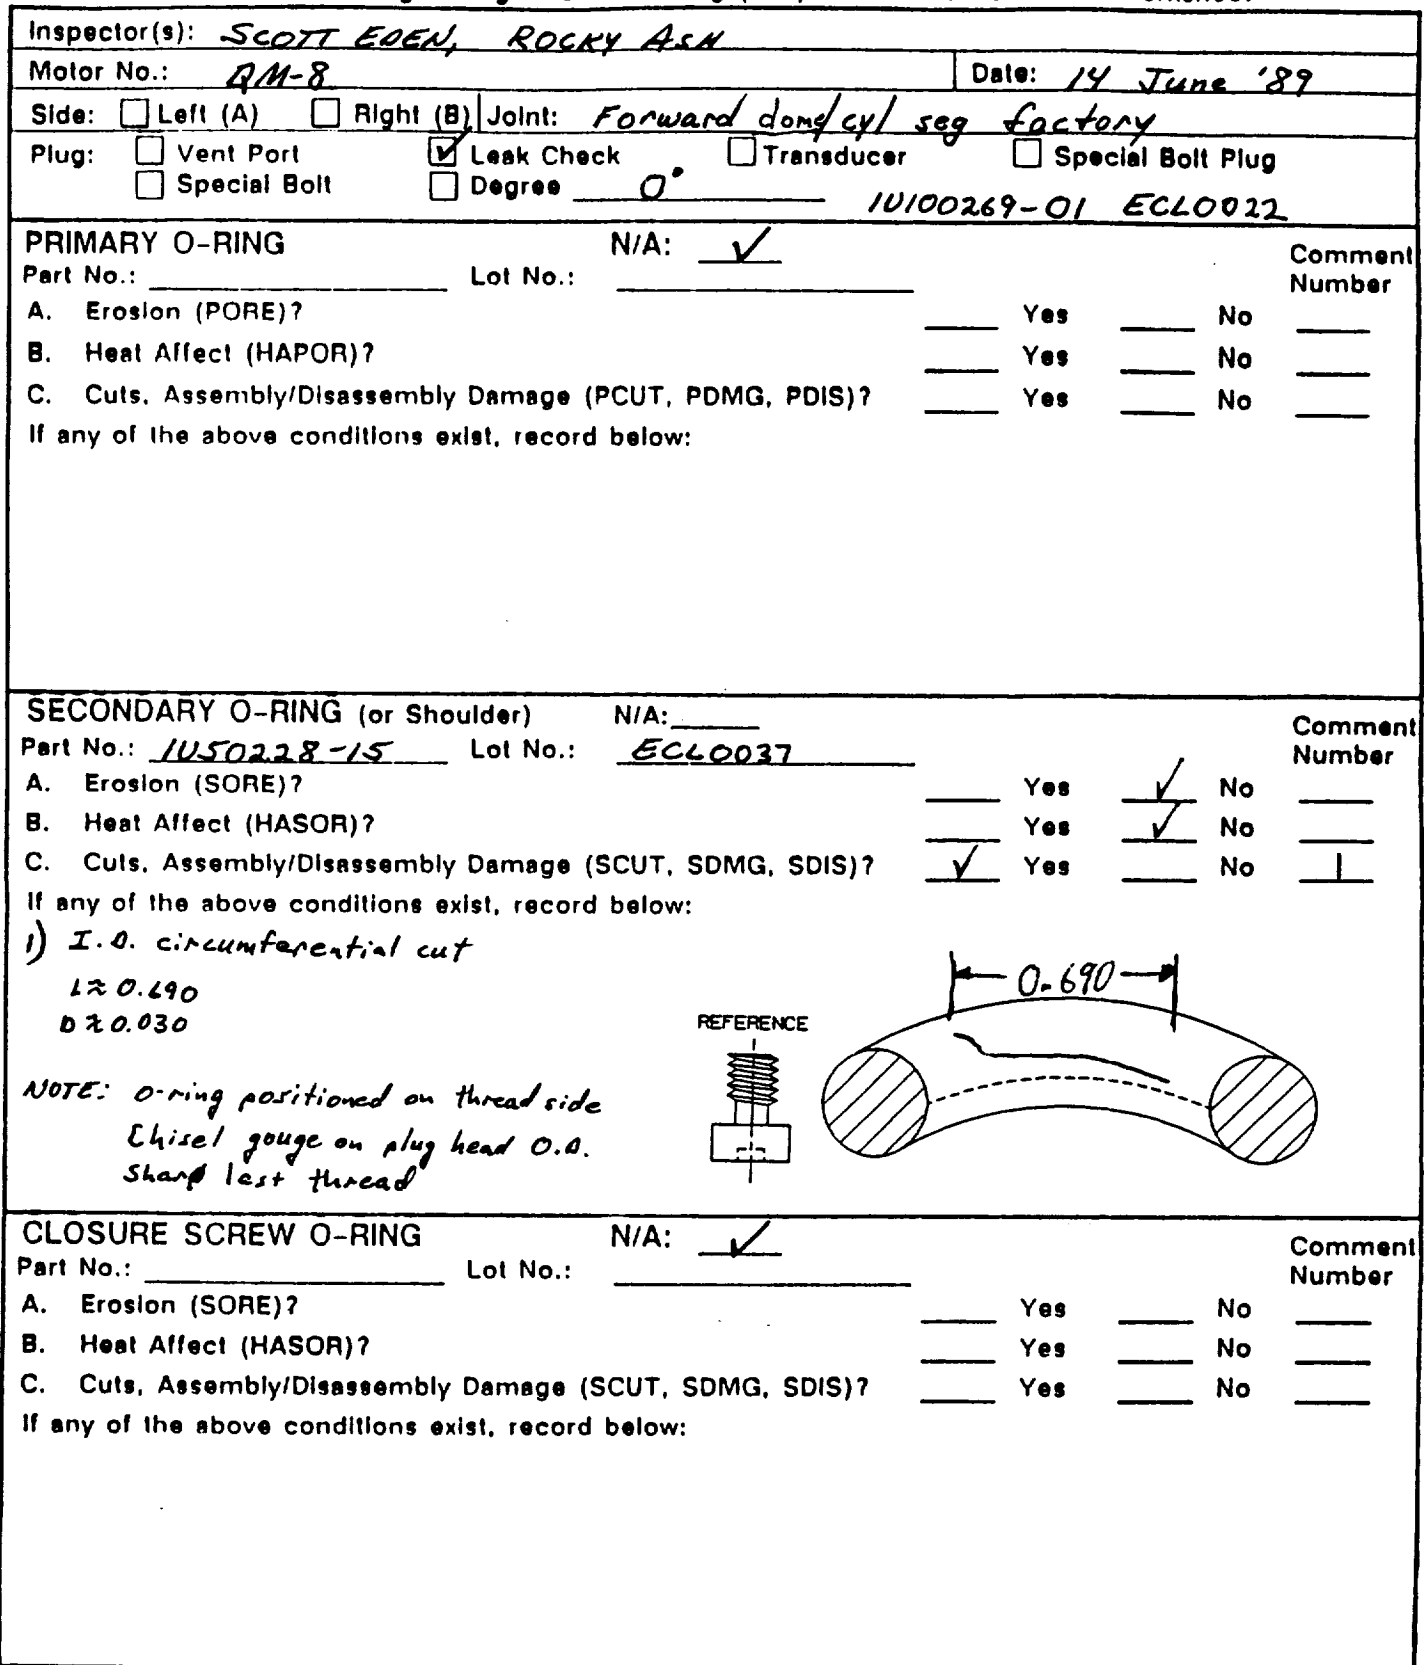 Inspector(s): SCOTT EDEN, ROCKY ASH
Motor No.: QM-8 Date: 14 June '89
Side: Left (A) Right (B) Joint: Forward dome/cyl seg factory
Plug: Vent Port Leak Check Transducer Special Bolt Plug
Special Bolt Degree 0°
1U100269-01 ECL0022
PRIMARY O-RING N/A: ✓
Comment
Part No.: Lot No.:
Number
A. Erosion (PORE)? Yes No
B. Heat Affect (HAPOR)? Yes No
C. Cuts, Assembly/Disassembly Damage (PCUT, PDMG, PDIS)? Yes No
If any of the above conditions exist, record below:
SECONDARY O-RING (or Shoulder) N/A:
Comment
Part No.: 1U50228-15 Lot No.: ECL0037
Number
A. Erosion (SORE)? Yes ✓ No
B. Heat Affect (HASOR)? Yes ✓ No
C. Cuts, Assembly/Disassembly Damage (SCUT, SDMG, SDIS)? ✓ Yes No 1
If any of the above conditions exist, record below:
1) I.D. circumferential cut
L≈0.690
D≈0.030
0.690
REFERENCE
NOTE: O-ring positioned on thread side
Chisel gouge on plug head O.D.
Sharp last thread
CLOSURE SCREW O-RING N/A: ✓
Comment
Part No.: Lot No.:
Number
A. Erosion (SORE)? Yes No
B. Heat Affect (HASOR)? Yes No
C. Cuts, Assembly/Disassembly Damage (SCUT, SDMG, SDIS)? Yes No
If any of the above conditions exist, record below: